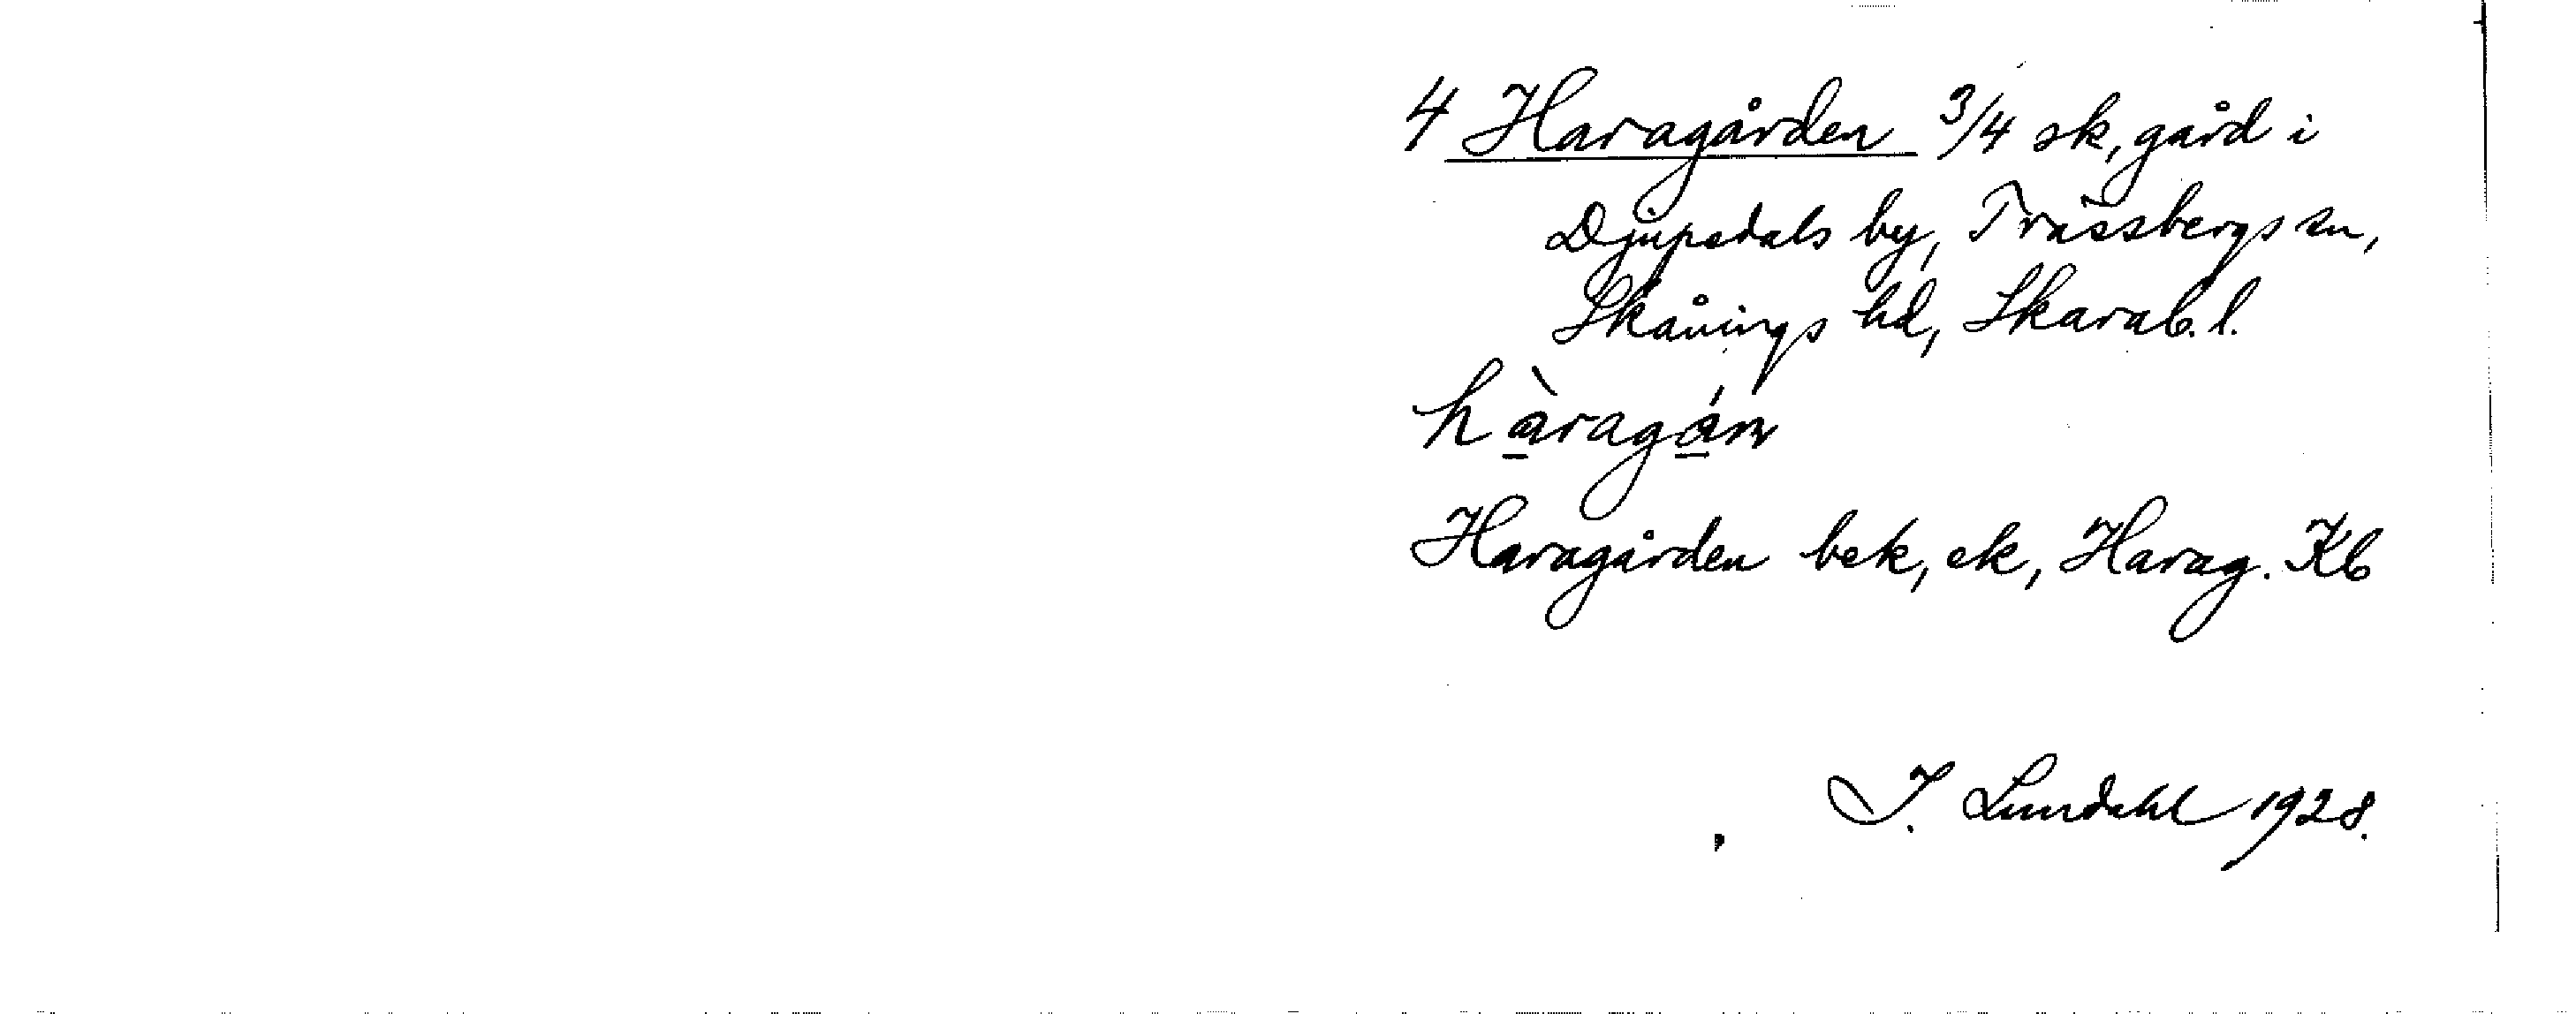 4 Haragården 3/4 sk, gård i
Djupedals by, Trässbergs sn,
Skånings hd, Skarab. l.
hàragán
Haragården bek, ek, Harag. Kb
I. Lundahl 1928.